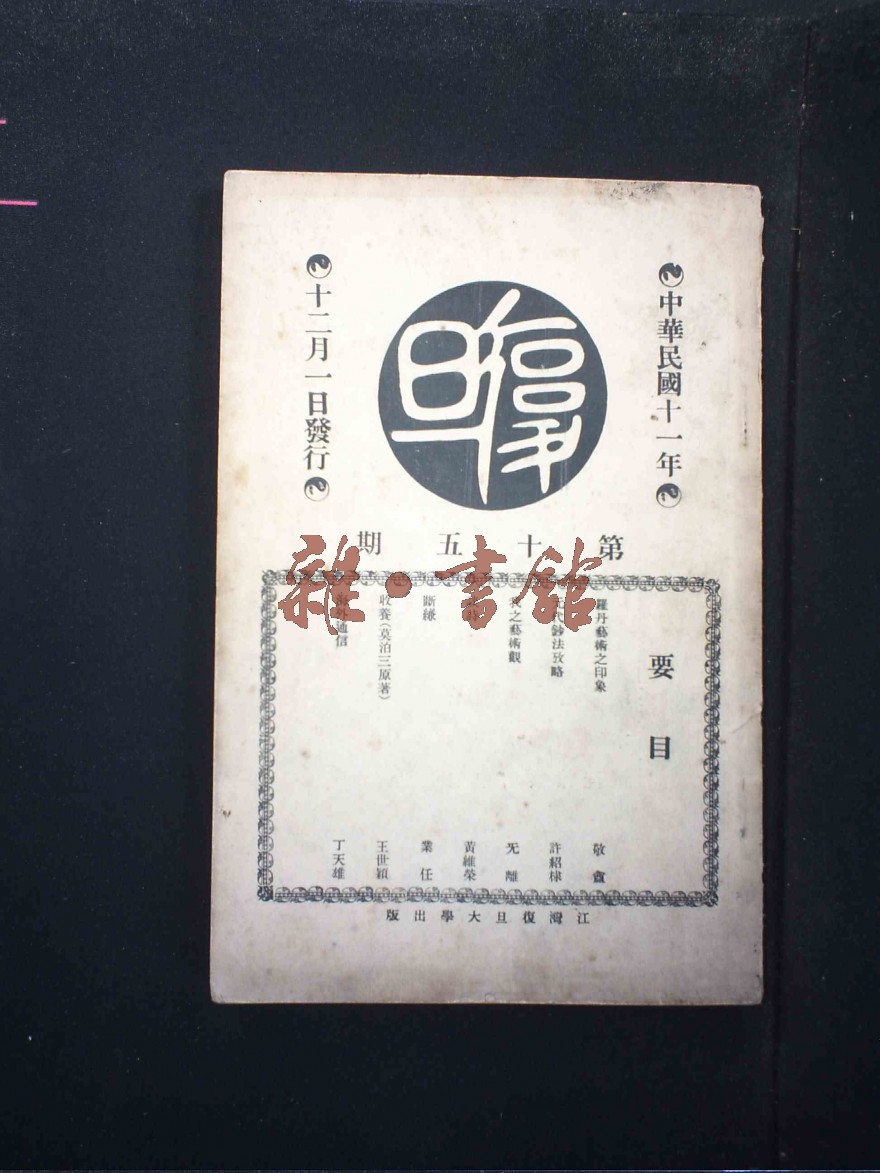 中華民國十一年
復旦
十二月一日發行
第十五期
要目
羅丹藝術之印象 敬
元代鈔法攷略 許紹棣
我之藝術觀 旡離
黃維榮
斷緣 業任
收養(莫泊三原著) 王世穎
海外通信 丁天雄
江灣復旦大學出版
雜·書館